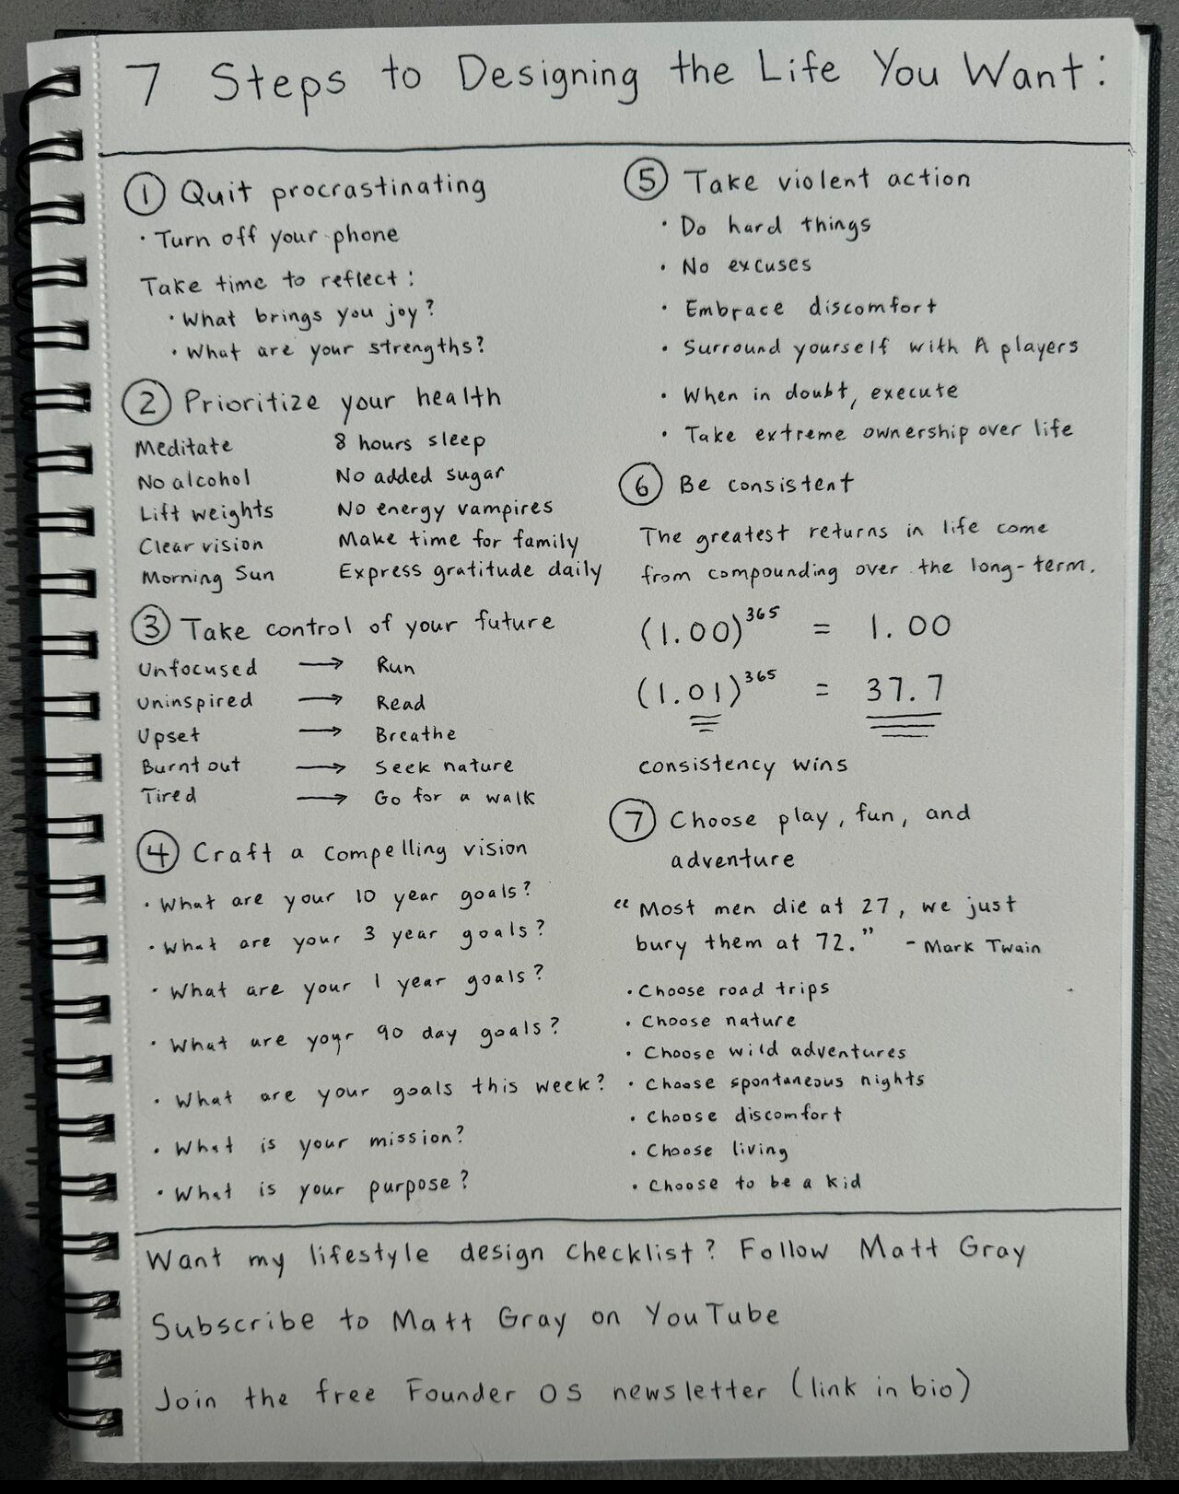 7 Steps to Designing the Life You Want:
① Quit procrastinating
· Turn off your phone
Take time to reflect:
· What brings you joy?
· What are your strengths?
② Prioritize your health
Meditate 8 hours sleep
No alcohol No added sugar
Lift weights No energy vampires
Clear vision Make time for family
Morning Sun Express gratitude daily
③ Take control of your future
Unfocused → Run
Uninspired → Read
Upset → Breathe
Burnt out → Seek nature
Tired → Go for a walk
④ Craft a compelling vision
· What are your 10 year goals?
· What are your 3 year goals?
· What are your 1 year goals?
· What are your 90 day goals?
· What are your goals this week?
· What is your mission?
· What is your purpose?
⑤ Take violent action
· Do hard things
· No excuses
· Embrace discomfort
· Surround yourself with A players
· When in doubt, execute
· Take extreme ownership over life
⑥ Be consistent
The greatest returns in life come
from compounding over the long-term.
(1.00)^365 = 1.00
(1.01)^365 = 37.7
consistency wins
⑦ Choose play, fun, and
adventure
“Most men die at 27, we just
bury them at 72.” - Mark Twain
· Choose road trips
· Choose nature
· Choose wild adventures
· Choose spontaneous nights
· Choose discomfort
· Choose living
· Choose to be a kid
Want my lifestyle design checklist? Follow Matt Gray
Subscribe to Matt Gray on YouTube
Join the free Founder OS newsletter (link in bio)